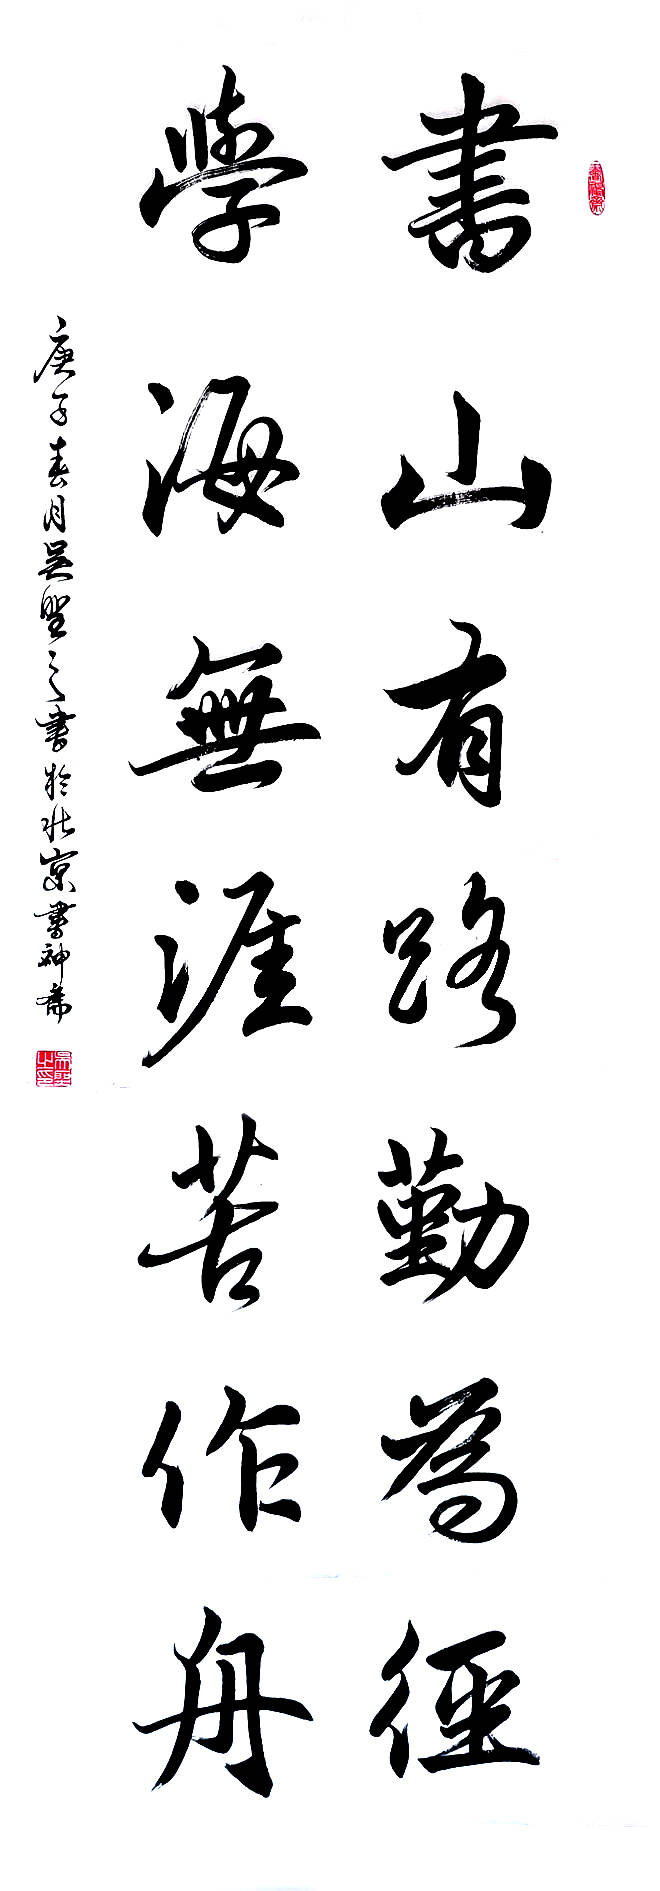 書山有路勤為徑
學海無涯苦作舟
庚子春月吴聖之書於北京書神斋